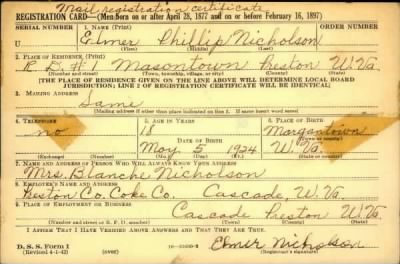 Mail registration certificate
REGISTRATION CARD—(Men born on or after April 28, 1877 and on or before February 16, 1897)
SERIAL NUMBER
1. NAME (Print)
ORDER NUMBER
U
Elmer Phillip Nicholson
(First) (Middle) (Last)
2. PLACE OF RESIDENCE (Print)
R.D.#1 Masontown Preston W.Va.
(Number and street) (Town, township, village, or city) (County) (State)
(THE PLACE OF RESIDENCE GIVEN ON THE LINE ABOVE WILL DETERMINE LOCAL BOARD
JURISDICTION; LINE 2 OF REGISTRATION CERTIFICATE WILL BE IDENTICAL)
3. MAILING ADDRESS
Same
(Mailing address if other than place indicated on line 2. If same insert word same)
4. TELEPHONE
5. AGE IN YEARS
6. PLACE OF BIRTH
no
18
Morgantown
DATE OF BIRTH
(Town or county)
May 5 1924
W. Va.
(Exchange) (Number)
(Mo.) (Day) (Yr.)
(State or country)
7. NAME AND ADDRESS OF PERSON WHO WILL ALWAYS KNOW YOUR ADDRESS
Mrs. Blanche Nicholson
8. EMPLOYER'S NAME AND ADDRESS
Preston Co. Coke Co. Cascade, W. Va.
9. PLACE OF EMPLOYMENT OR BUSINESS
Cascade Preston W. Va.
(Number and street or R. F. D. number) (Town) (County) (State)
I AFFIRM THAT I HAVE VERIFIED ABOVE ANSWERS AND THAT THEY ARE TRUE.
D. S. S. Form 1
(Revised 4-1-42) (over)
Elmer Nicholson
(Registrant's signature)